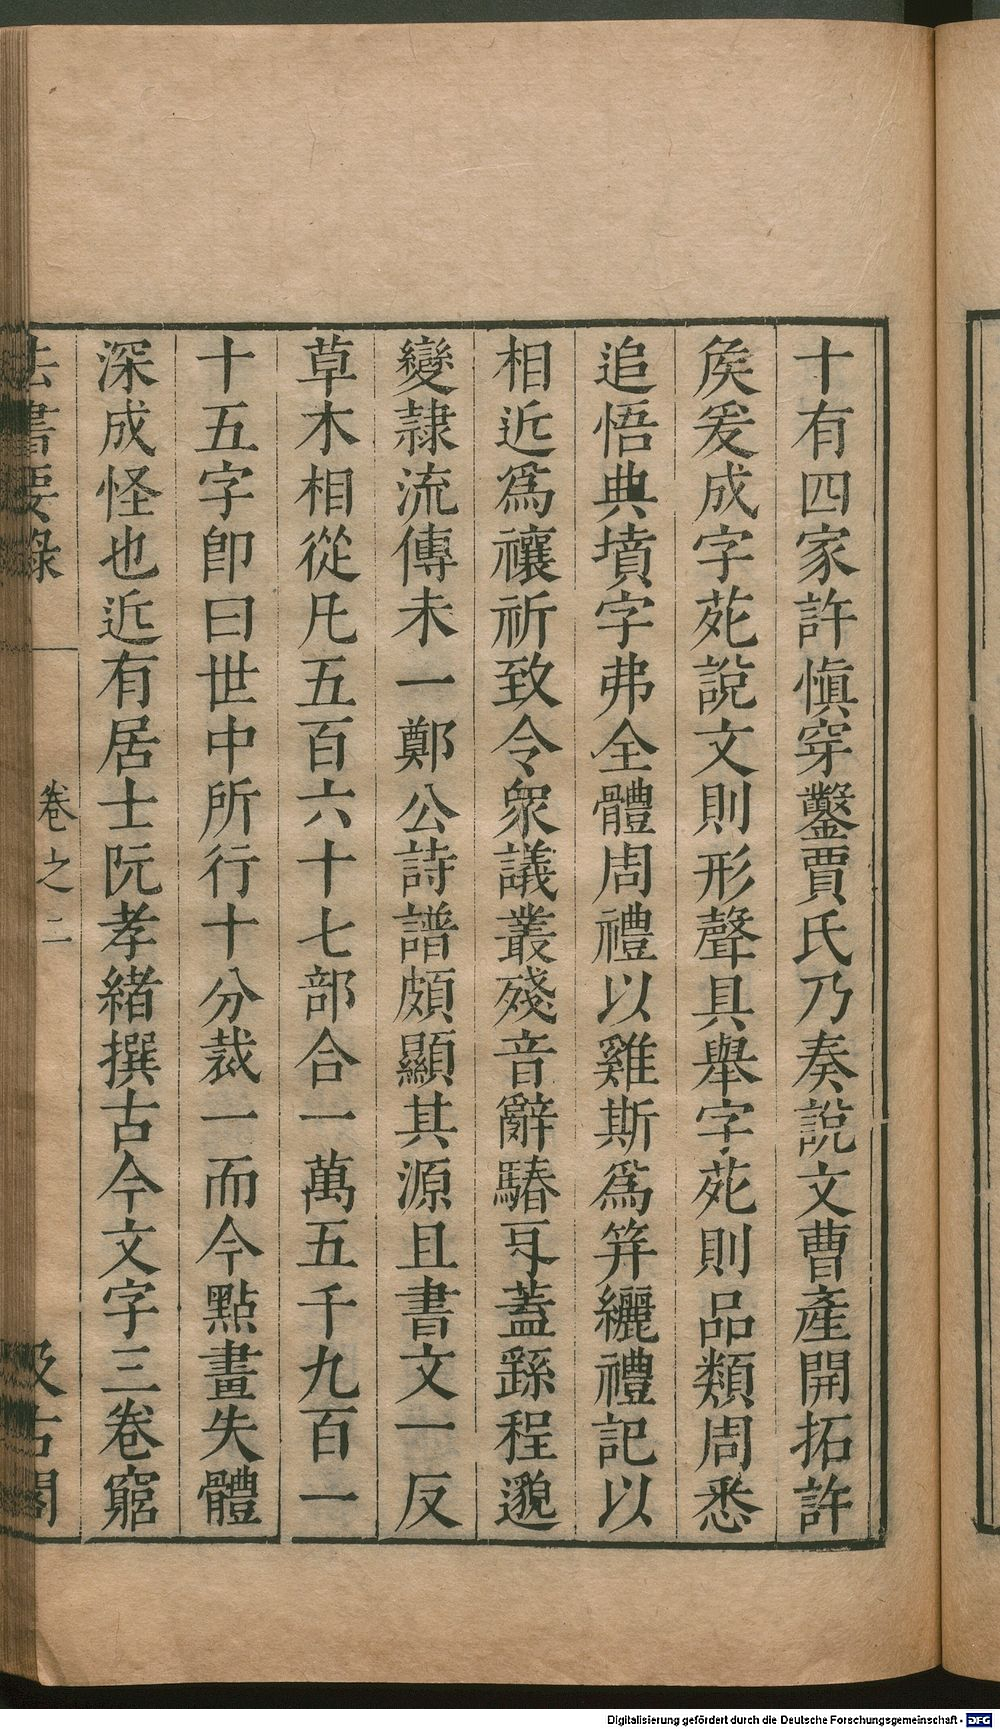 十有四家許愼穿鑿賈氏乃奏說文曹產開拓許
矦爰成字苑說文則形聲具舉字苑則品類周悉
追悟典墳字弗全體周禮以雞斯爲笄纚禮記以
相近爲禳祈致令衆議叢殘音辭騞㸦蓋繇程邈
變隷流傳未一鄭公詩譜頗顯其源且書文一反
草木相從凡五百六十七部合一萬五千九百一
十五字卽曰世中所行十分裁一而今點畫失體
深成怪也近有居士阮孝緒撰古今文字三卷窮
法書要錄 卷之二 汲古閣
Digitalisierung gefördert durch die Deutsche Forschungsgemeinschaft - DFG